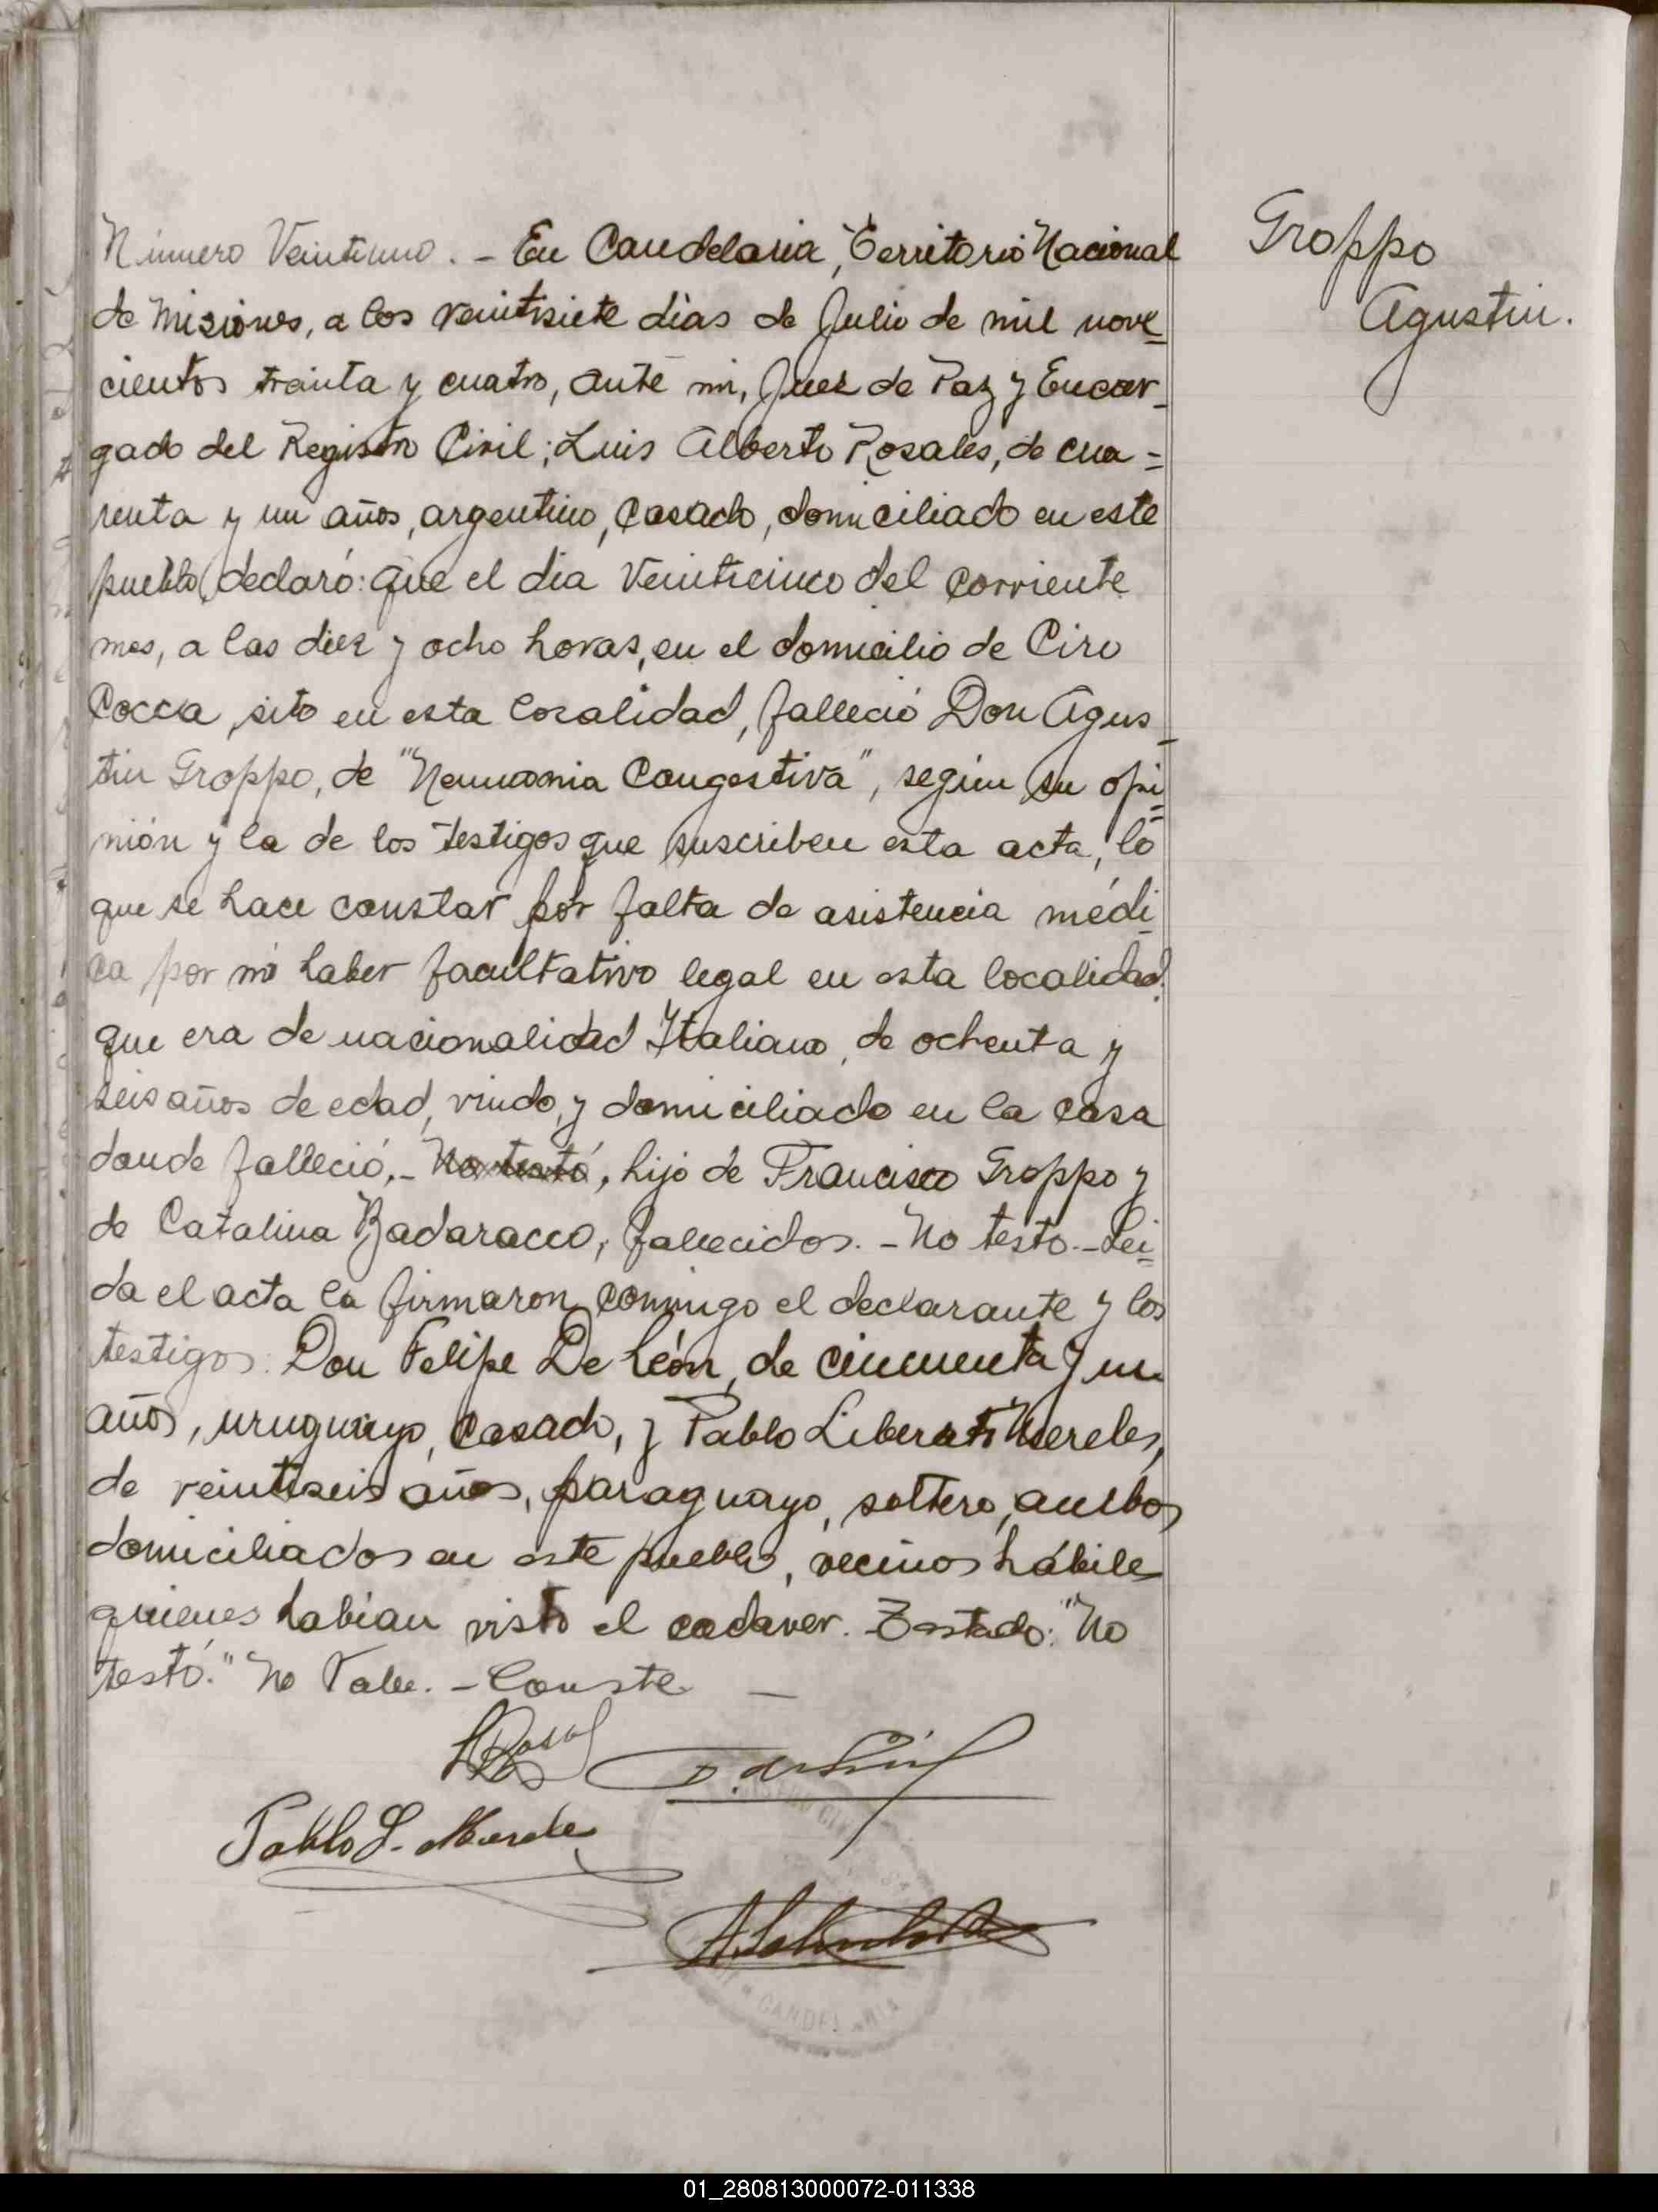 Número Veintiuno. - En Candelaria, Territorio Nacional
de Misiones, a los veintisiete dias de Julio de mil nove=
cientos treinta y cuatro, ante mi, Juez de Paz y Encar-
gado del Registro Civil; Luis Alberto Rosales, de cua=
renta y un años, argentino, casado, domiciliado en este
pueblo, declaró: que el dia veinticinco del corriente
mes, a las diez y ocho horas, en el domicilio de Ciro
Cocca, sito en esta localidad, falleció Don Agus-
tin Groppo, de "Neumonia Congestiva", según su opi=
nión y la de los testigos que suscriben esta acta, lo
que se hace constar por falta de asistencia médi-
ca por no haber facultativo legal en esta localidad;
que era de nacionalidad Italiano, de ochenta y
seis años de edad, viudo, y domiciliado en la casa
donde falleció.- No testó, hijo de Francisco Groppo y
de Catalina Badaracco, fallecidos. - No testo. - Lei=
da el acta la firmaron conmigo el declarante y los
testigos: Don Felipe De León, de cincuenta y un
años, uruguayo, casado, y Pablo Liberato Mereles,
de veintiseis años, paraguayo, soltero, ambos
domiciliados en este pueblo, vecinos hábiles
quienes habian visto el cadaver. - Testado: "No
testó." No Vale. - Conste. -
Groppo
Agustin.
Pablo L. Mereles
CANDELARIA
01_280813000072-011338